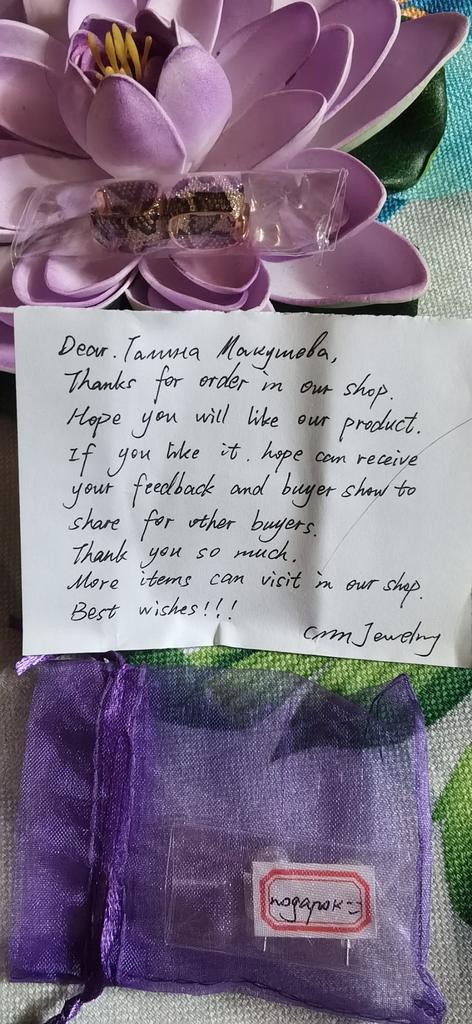 Dear. Галина Макушева,
Thanks for order in our shop.
Hope you will like our product.
If you like it. hope can receive
your feedback and buyer show to
share for other buyers.
Thank you so much.
More items can visit in our shop.
Best wishes!!!
Cmm Jewelry
подарок=)